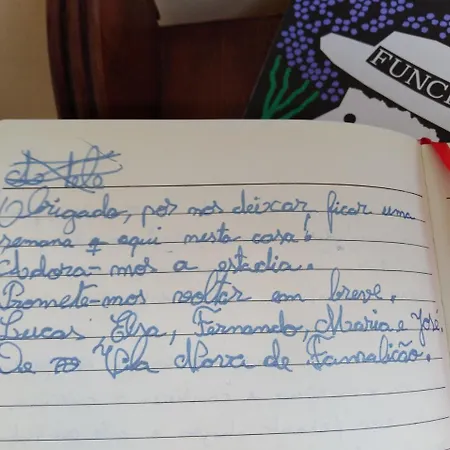 FUNCH
Obrigado, por nos deixar, ficar uma
semana + aqui nesta casa!
Adora-mos a estadia.
Prometa-mos voltar em breve.
Lucas, Elsa, Fernando, Maria e José.
De Vila Nova de Famalicão.